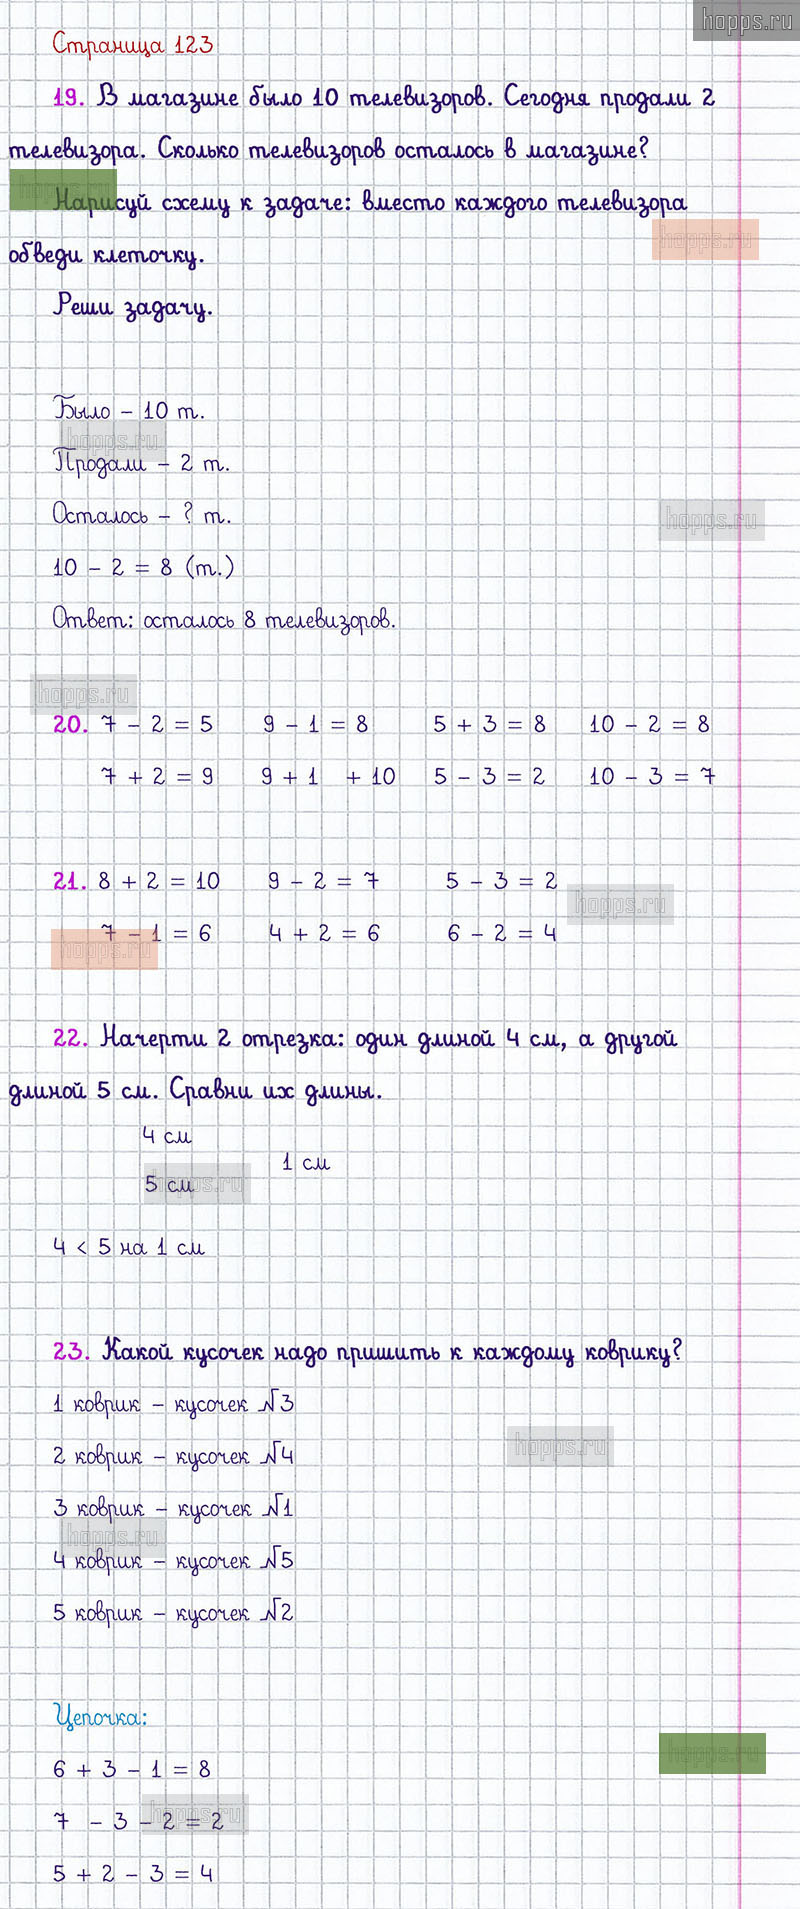 hopps.ru
Страница 123
19. В магазине было 10 телевизоров. Сегодня продали 2
телевизора. Сколько телевизоров осталось в магазине?
hopps.ru
Нарисуй схему к задаче: вместо каждого телевизора
hopps.ru
обведи клеточку.
Реши задачу.
Было – 10 т.
hopps.ru
Продали – 2 т.
Осталось – ? т.
hopps.ru
10 – 2 = 8 (т.)
Ответ: осталось 8 телевизоров.
hopps.ru
20. 7 – 2 = 5 9 – 1 = 8 5 + 3 = 8 10 – 2 = 8
7 + 2 = 9 9 + 1 + 10 5 – 3 = 2 10 – 3 = 7
21. 8 + 2 = 10 9 – 2 = 7 5 – 3 = 2
hopps.ru
7 – 1 = 6 4 + 2 = 6 6 – 2 = 4
hopps.ru
22. Начерти 2 отрезка: один длиной 4 см, а другой
длиной 5 см. Сравни их длины.
4 см
1 см
5 см
hopps.ru
4 < 5 на 1 см
23. Какой кусочек надо пришить к каждому коврику?
1 коврик – кусочек №3
2 коврик – кусочек №4
hopps.ru
3 коврик – кусочек №1
hopps.ru
4 коврик – кусочек №5
5 коврик – кусочек №2
Цепочка:
hopps.ru
6 + 3 – 1 = 8
hopps.ru
7 – 3 – 2 = 2
5 + 2 – 3 = 4